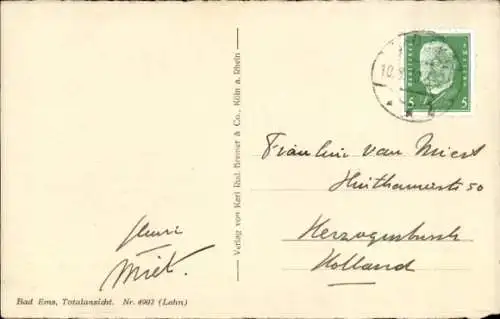 10.
5 5
Fräulein van Miert
50
Herzogenbusch
Holland
Verlag von Karl Rud. Bremer & Co., Köln a. Rhein
Miet.
Bad Ems, Totalansicht. Nr. 6902 (Lahn)